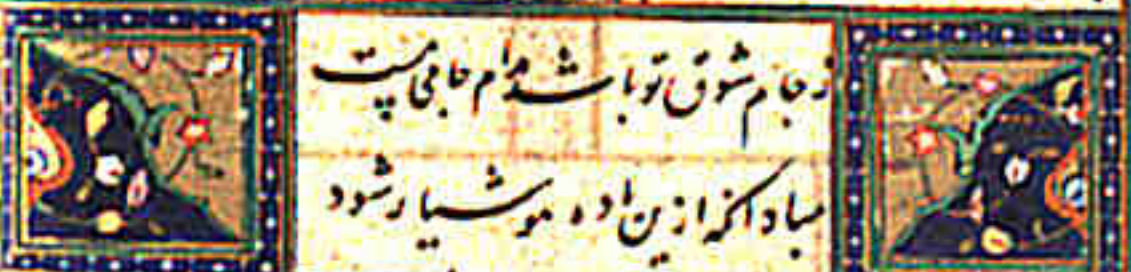 ز جام شوق تو باشد مدام جامی مست
مباد آنکه ازین باده هوشیار شود